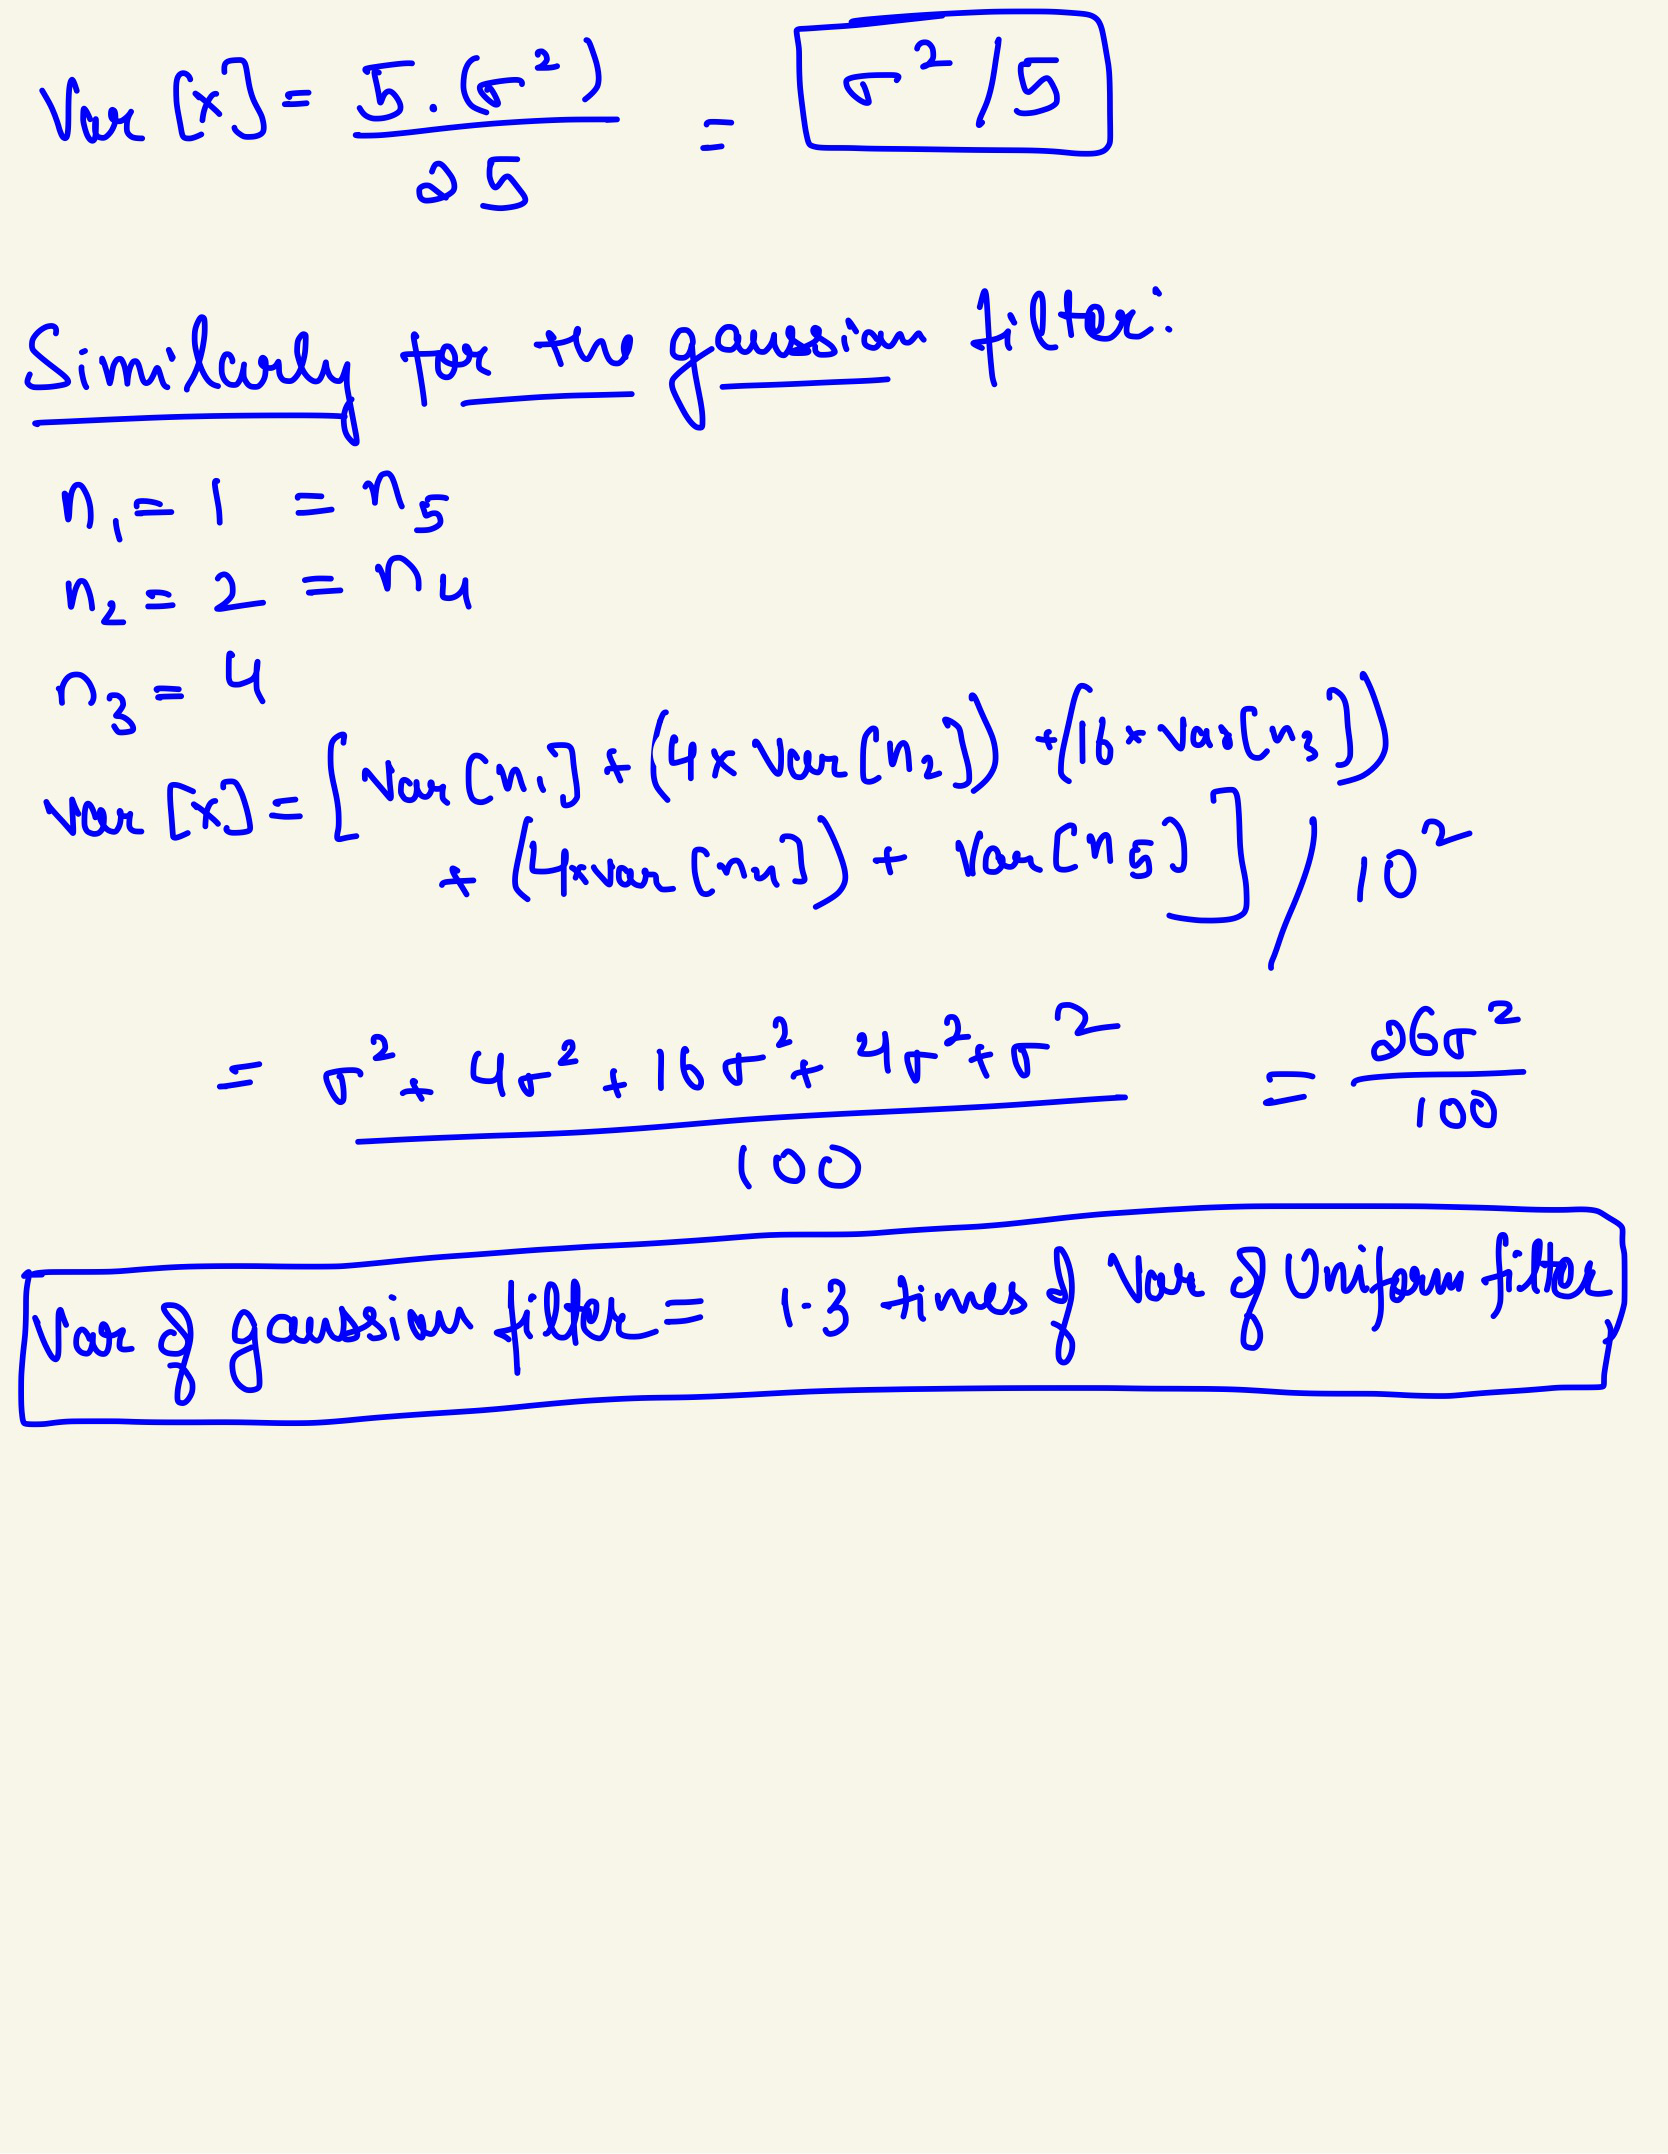 Var [x] = 5.(σ²) / 25 = σ²/5
Similarly for the gaussian filter:
n₁ = 1 = n₅
n₂ = 2 = n₄
n₃ = 4
Var [x] = [ Var [n₁] + (4 × Var [n₂]) + (16 × Var [n₃])
+ (4 × var [n₄]) + Var [n₅] ] / 10²
= σ² + 4σ² + 16σ² + 4σ² + σ² / 100 = 26σ² / 100
Var of gaussian filter = 1.3 times of Var of Uniform filter